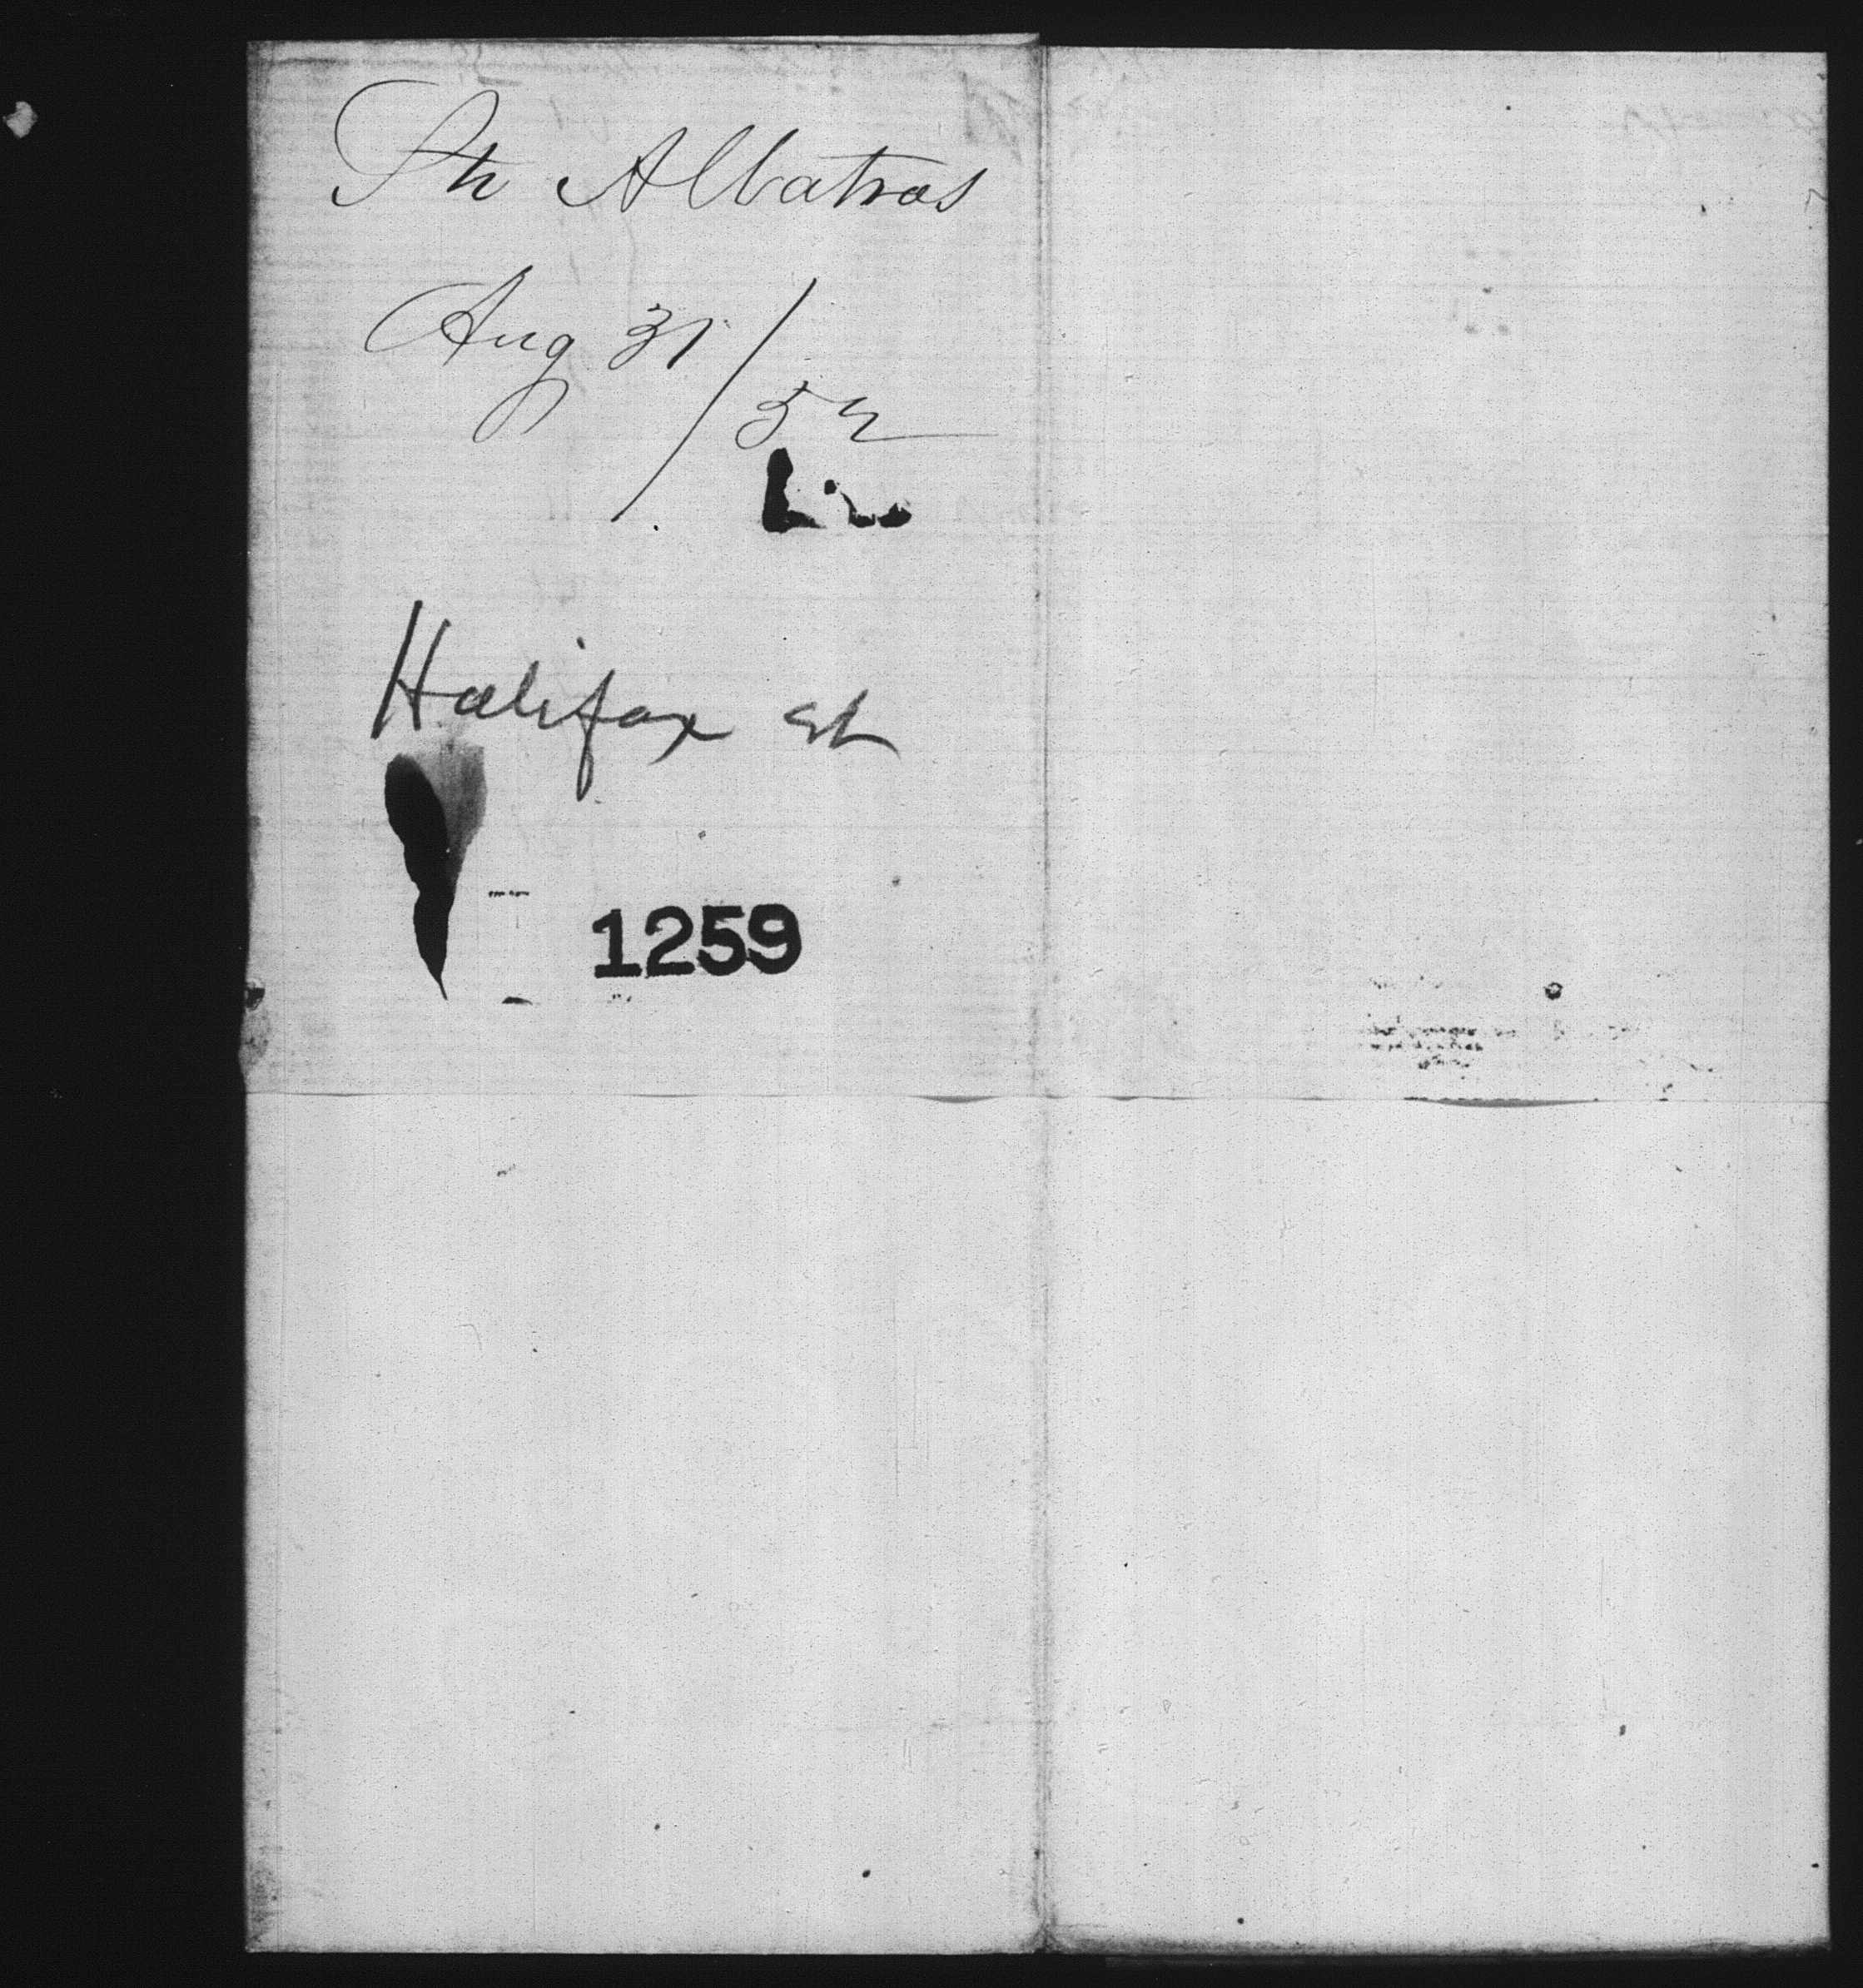 Str Albatros
Aug 31/52
Halifax st
1259